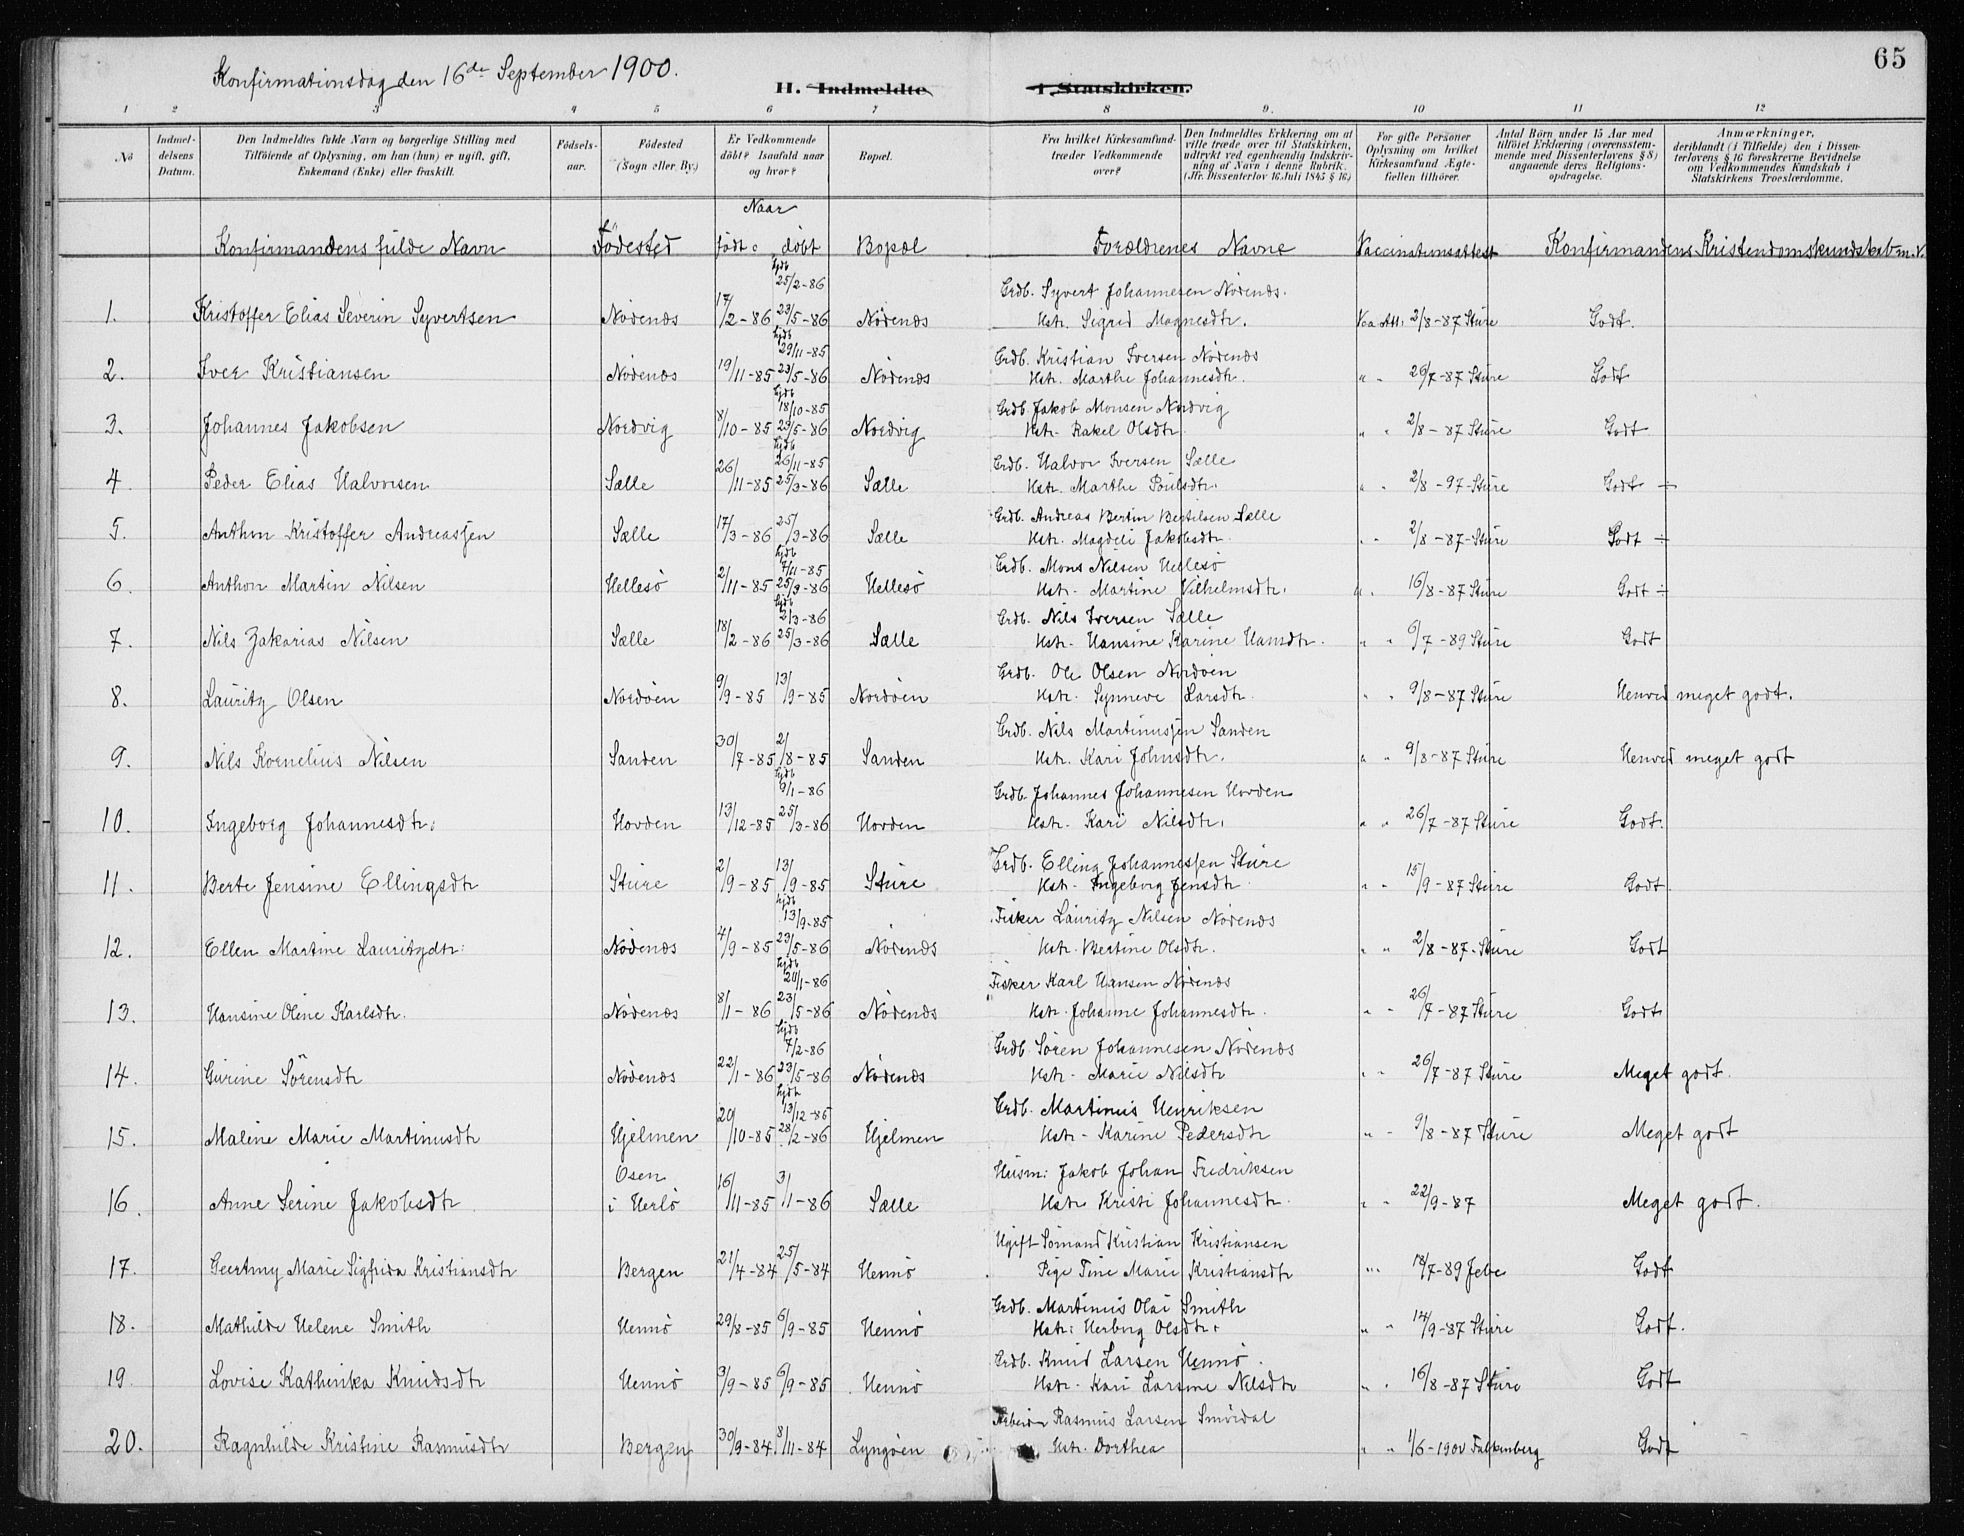 65
Konfirmationsdag den 16de September 1900.
H. Indmeldte i Statskirken.
1 2 3 4 5 6 7 8 9. 10 11 12
No
Indmeldelsens Datum.
Den Indmeldtes fulde Navn og borgerlige Stilling med Tilföiende af Oplysning, om han (hun) er ugift, gift, Enkemand (Enke) eller fraskilt.
Födselsaar.
Födested (Sogn eller By.)
Er Vedkommende döbt? Isaafald naar og hvor?
Bopæl.
Fra hvilket Kirkesamfund træder Vedkommende over?
Den Indmeldtes Erklæring om at ville træde over til Statskirken, udtrykt ved egenhændig Indskrivning af Navn i denne Rubrik. (Jfr. Dissenterlov 16 Juli 1845 § 16)
For gifte Personer Oplysning om hvilket Kirkesamfund Ægtefællen tilhörer.
Antal Börn under 15 Aar med tilföiet Erklæring (overensstemmende med Dissenterlovens § 8) angaaende deres Religionsopdragelse.
Anmærkninger, deriblandt (i Tilfælde) den i Dissenterlovens § 16 foreskrevne Bevidnelse om Vedkommendes Kundskab i Statskirkens Troeslærdomme.
Naar
Konfirmandens fulde Navn Födested födt døbt Bopæl Forældrenes Navne Vaccinationsattest Konfirmandens Kristendomskundskab m.v.
hjdb 25/2-86 Grdb. Syvert Johannesen Nödenæs.
1. Kristoffer Elias Severin Syvertsen Nödenæs 17/2-86 23/5-86 Nödenæs Hstr. Sigrid Magnesdtr. Vac Att: 2/8-87 Sture Godt.
hjdb 29/11-85 Grdb. Kristian Iversen Nödenæs
2. Iver Kristiansen Nödenæs 19/11-85 23/5-86 Nödenæs Hstr. Marthe Johannesdtr. " " 26/7-87 Sture Godt
hjdb 18/10-85 Grdb. Jakob Monsen Nordvig
3. Johannes Jakobsen Nordvig 8/10-85 23/5-86 Nordvig Hstr. Rakel Olsdtr. " " 2/8-87 Sture Godt
hjdb 26/11-85 Grdb. Halvor Iversen Sælle
4. Peder Elias Halvorsen Sælle 26/11-85 25/3-86 Sælle Hstr. Marthe Poulsdtr. " " 2/8-97 Sture Godt ÷
Grdb. Andreas Bertin Bertilsen Sælle
5. Anthon Kristoffer Andreassen Sælle 17/3-86 25/3-86 Sælle Hstr. Magdeli Jakobsdtr. " " 2/8-87 Sture Godt ÷
hjdb 7/11-85 Grdb. Mons Nilsen Hellesö
6. Anthon Martin Nilsen Hellesö 2/11-85 25/3-86 Hellesö Hstr. Martine Vilhelmsdtr. " " 16/8-87 Sture Godt ÷
hjdb 2/3-86 Grdb. Nils Iversen Sælle
7. Nils Zakarias Nilsen Sælle 18/2-86 25/3-86 Sælle Hstr. Hansine Karine Hansdtr. " " 9/7-89 Sture Godt
Grdb. Ole Olsen Nordöen
8. Lauritz Olsen Nordöen 9/9-85 13/9-85 Nordöen Hstr. Synneve Larsdtr. " " 9/8-87 Sture Henved meget godt.
Grdb. Nils Martinussen Sanden
9. Nils Kornelius Nilsen Sanden 30/7-85 2/8-85 Sanden Hstr. Kari Johnsdtr. " " 9/8-87 Sture Henved meget godt
hjdb 9/1-86 Grdb. Johannes Johannesen Hovden
10. Ingeborg Johannesdtr: Hovden 13/12-85 25/3-86 Hovden Hstr. Kari Nilsdtr. " " 26/7-87 Sture Godt.
Grdb. Elling Johannessen Sture
11. Berte Jensine Ellingsdtr Sture 2/9-85 13/9-85 Sture Hstr. Ingeborg Jensdtr. " " 15/9-87 Sture Godt.
hjdb 13/9-85 Fisker Lauritz Nilsen Nödenæs
12. Ellen Martine Lauritzdtr: Nödenæs 4/9-85 23/5-86 Nödenæs Hstr. Bertine Olsdtr. " " 2/8-87 Sture Godt
hjdb 20/1-86 Fisker Karl Hansen Nödenæs
13. Hansine Oline Karlsdtr. Nödenæs 8/1-86 23/5-86 Nödenæs Hstr. Johanne Johannesdtr. " " 26/7-87 Sture Godt
hjdb 7/2-86 Grdb. Sören Johannesen Nödenæs
14. Gurine Sörensdtr Nödenæs 22/1-86 23/5-86 Nödenæs Hstr. Marie Nilsdtr " " 26/7-87 Sture Meget godt.
hjdb 13/12-85 Grdb. Martinus Henriksen
15. Maline Marie Martinusdtr Hjelmen 20/10-85 28/2-86 Hjelmen Hstr. Karine Pedersdtr " " 9/8-87 Sture Meget godt
Osen Husm: Jakob Johan Fredriksen
16. Anne Serine Jakobsdtr i Herlö 16/11-85 3/1-86 Sælle Hstr Kristi Johannesdtr. " " 22/9-87 Meget godt.
Ugift Sömand Kristian Kristiansen
17. Marie Sigfrida Kristiansdtr Bergen 21/4-84 25/5-84 Hennö Pige Tine Marie Kristiansdtr " " 18/7-89 Godt
Grdb. Martinus Olai Smith
18. Mathilde Helene Smith Hennö 29/8-85 6/9-85 Hennö Hstr: Herborg Olsdtr. " " 14/9-87 Sture Godt.
Grdb. Knud Larsen Hennö.
19. Lovise Kathinka Knudsdtr Hennö 3/9-85 6/9-85 Hennö Hstr. Kari Larsine Nilsdtr " " 16/8-87 Sture Godt
Arbeider Rasmus Larsen Smördal
20. Ragnhilde Kristine Rasmusdtr Bergen 30/9-84 8/11-84 Lyngöen Hstr. Dorthea " " 1/6-1900 Falkenberg Godt